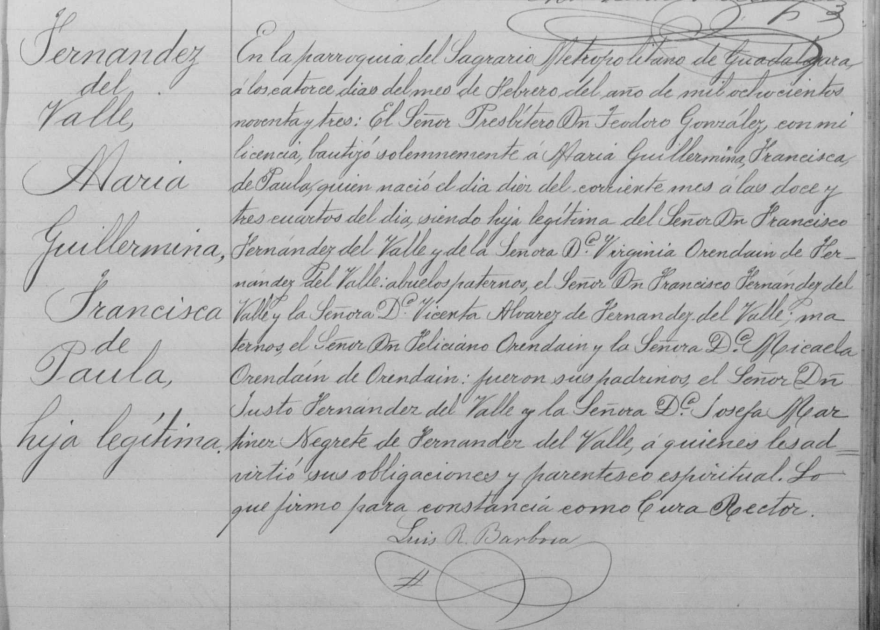 Fernandez
del
Valle,
Maria
Guillermina,
Francisca
de
Paula,
hija legítima.
En la parroquia del Sagrario Metropolitano de Guadalajara,
á los catorce dias del mes de Febrero del año de mil ochocientos
noventa y tres: El Señor Presbítero Dn Teodoro González, con mi
licencia, bautizó solemnemente á Maria Guillermina, Francisca,
de Paula, quien nació el dia diez del corriente mes á las doce y
tres cuartos del dia, siendo hija legítima del Señor Dn Francisco
Fernández del Valle y de la Señora Da. Virginia Orendain de Fer-
nández del Valle: abuelos paternos, el Señor Dn Francisco Fernández del
Valle y la Señora Da. Vicenta Alvarez de Fernandez del Valle; ma
ternos, el Señor Dn Feliciano Orendain y la Señora Da. Micaela
Orendaín de Orendain: fueron sus padrinos, el Señor Dn
Justo Fernández del Valle y la Señora Da. Josefa Mar
tinez Negrete de Fernandez del Valle, á quienes les ad=
virtió sus obligaciones y parentesco espiritual. Lo
que firmo para constancia como Cura Rector.
Luis R. Barbosa